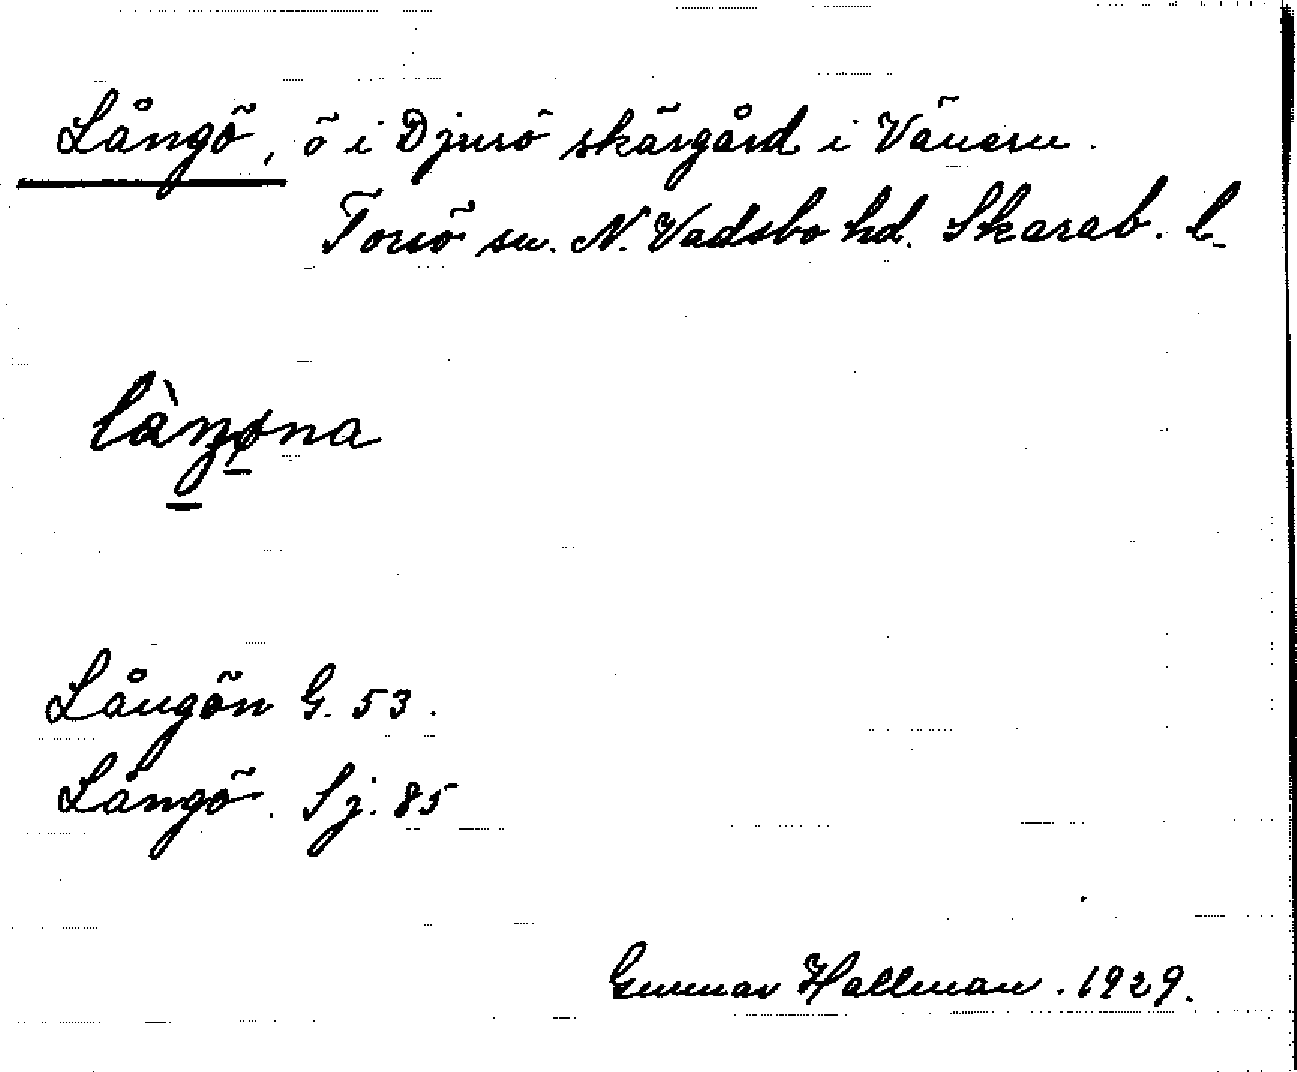 Långö, ö i Djurö skärgård i Vänern.
Torsö sn. N. Vadsbo hd. Skarab. l.
Långön G. 53.
Långö. Sj. 85
Gunnar Hallman. 1929.